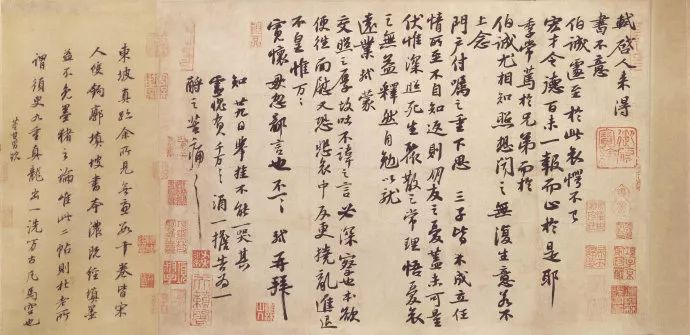 軾啓人來得
書不意
伯誠遽至於此哀愕不已
宏才令德百未一報而止於是耶
季常篤於兄弟而於
伯誠尤相知照想聞之無復生意若不
上念
門户付囑之重下思三子皆不成立任
情所至不自知返則朋友之憂蓋未可量
伏惟深照死生聚散之常理悟憂哀
之無益釋然自勉以就
遠業軾蒙
交照之厚故吐不諱之言必深察也本欲
便往面慰又恐悲哀中反更撓亂進退
不皇惟萬萬
寬懷毋忽鄙言也不一一 軾再拜
知廿九日舉挂不能一哭其
靈愧負千萬千萬酒一擔告為一
酹之苦痛苦痛
東坡真跡余所見無慮數十卷皆宋
人雙鉤廓填坡書本濃既經填墨
益不免墨豬之論唯此二帖則杜老所
謂須臾九重真龍出一洗萬古凡馬空也
董其昌